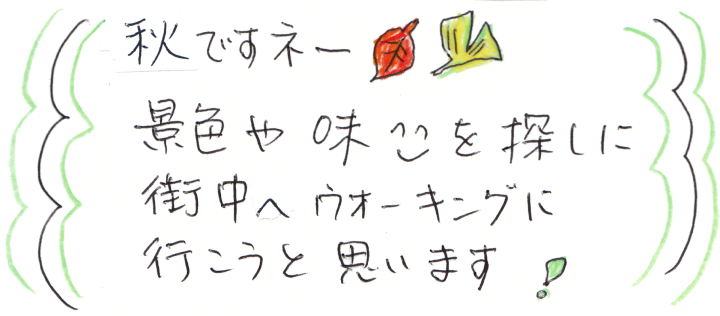 秋ですネー
景色や味を探しに
街中へウォーキングに
行こうと思います!